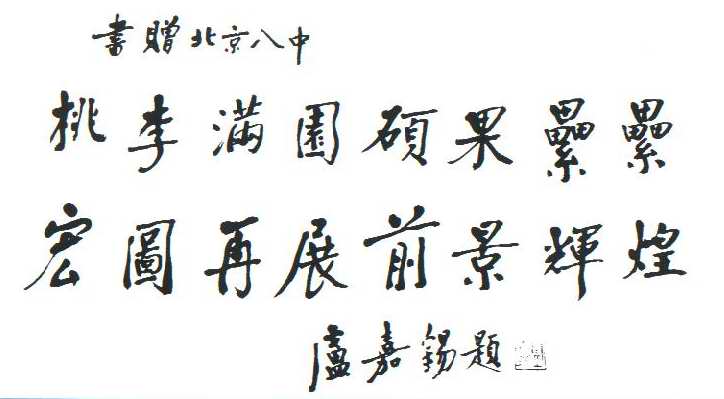 書贈北京八中
桃李滿園碩果纍纍
宏圖再展前景輝煌
盧嘉錫題